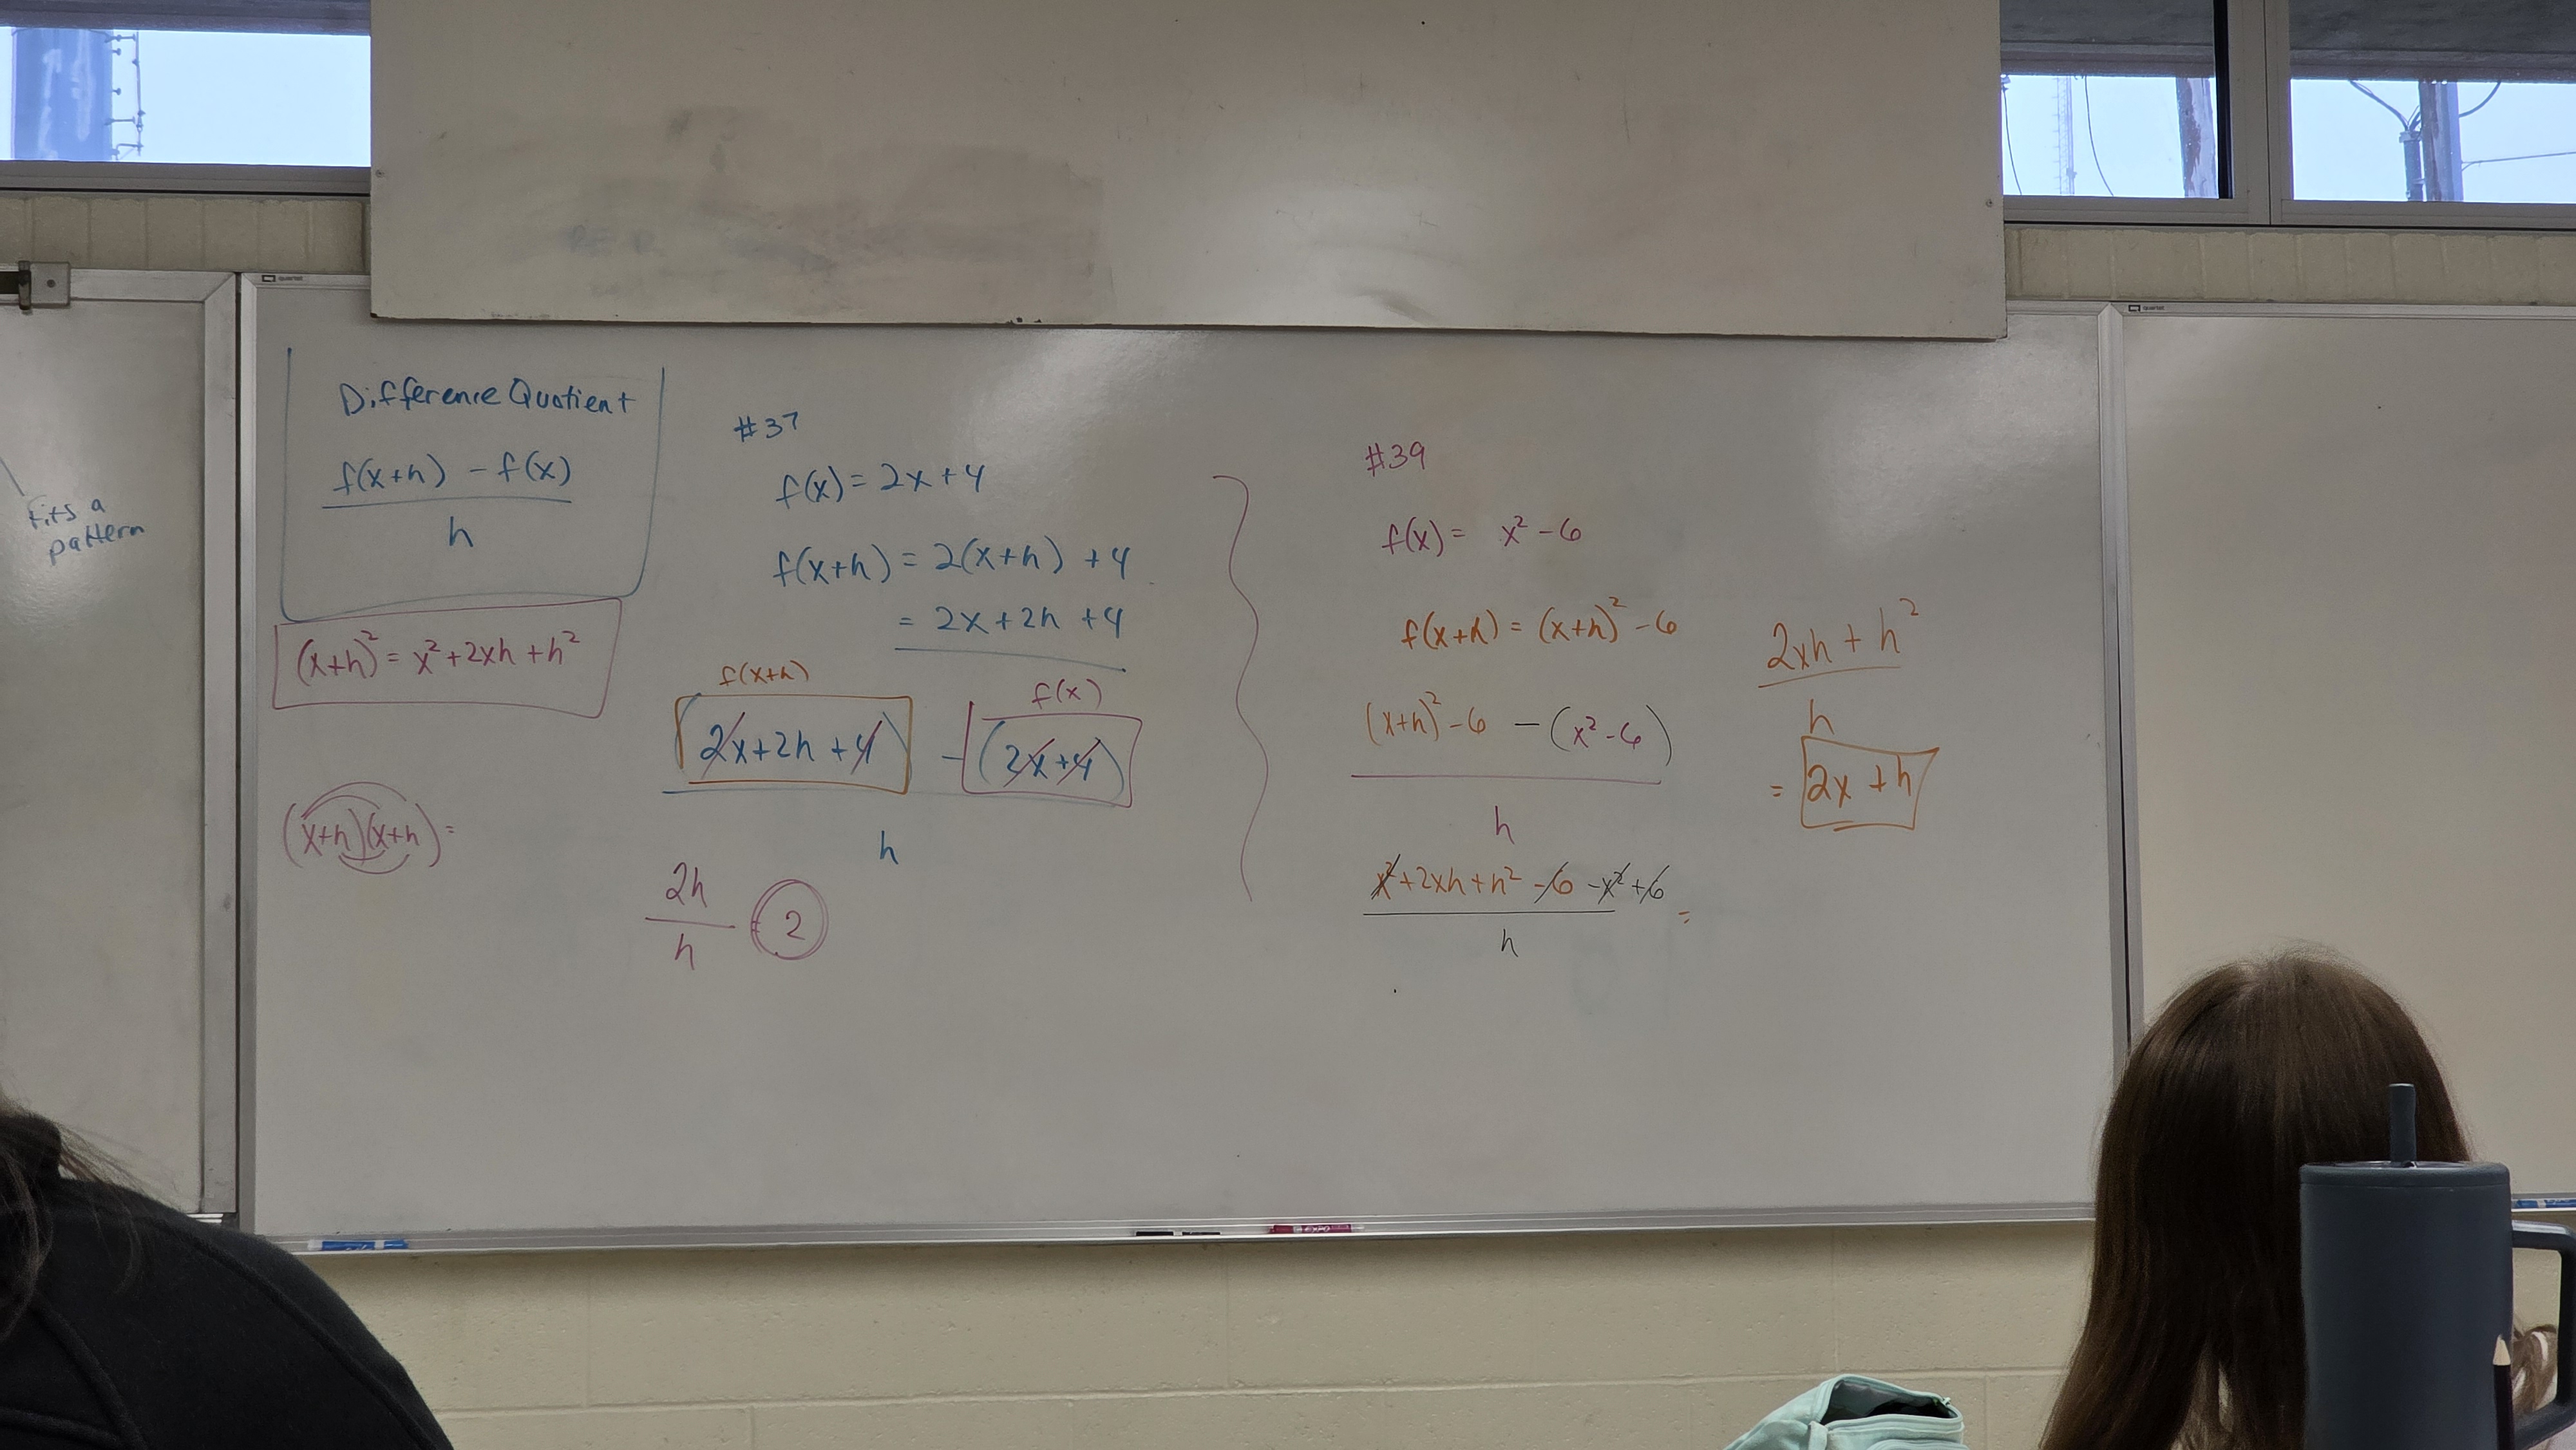 fits a
pattern
Difference Quotient
f(x+h) - f(x)
h
(x+h)² = x² + 2xh + h²
(x+h)(x+h) =
#37
f(x) = 2x+4
f(x+h) = 2(x+h) +4
= 2x+2h +4
f(x+h)
f(x)
(2x+2h+4) - (2x+4)
h
2h
h
= 2
#39
f(x) = x² - 6
f(x+h) = (x+h)² - 6
(x+h)² - 6 - (x² - 6)
h
x² + 2xh + h² - 6 - x² + 6 =
h
2xh + h²
h
= 2x + h
quartet
quartet